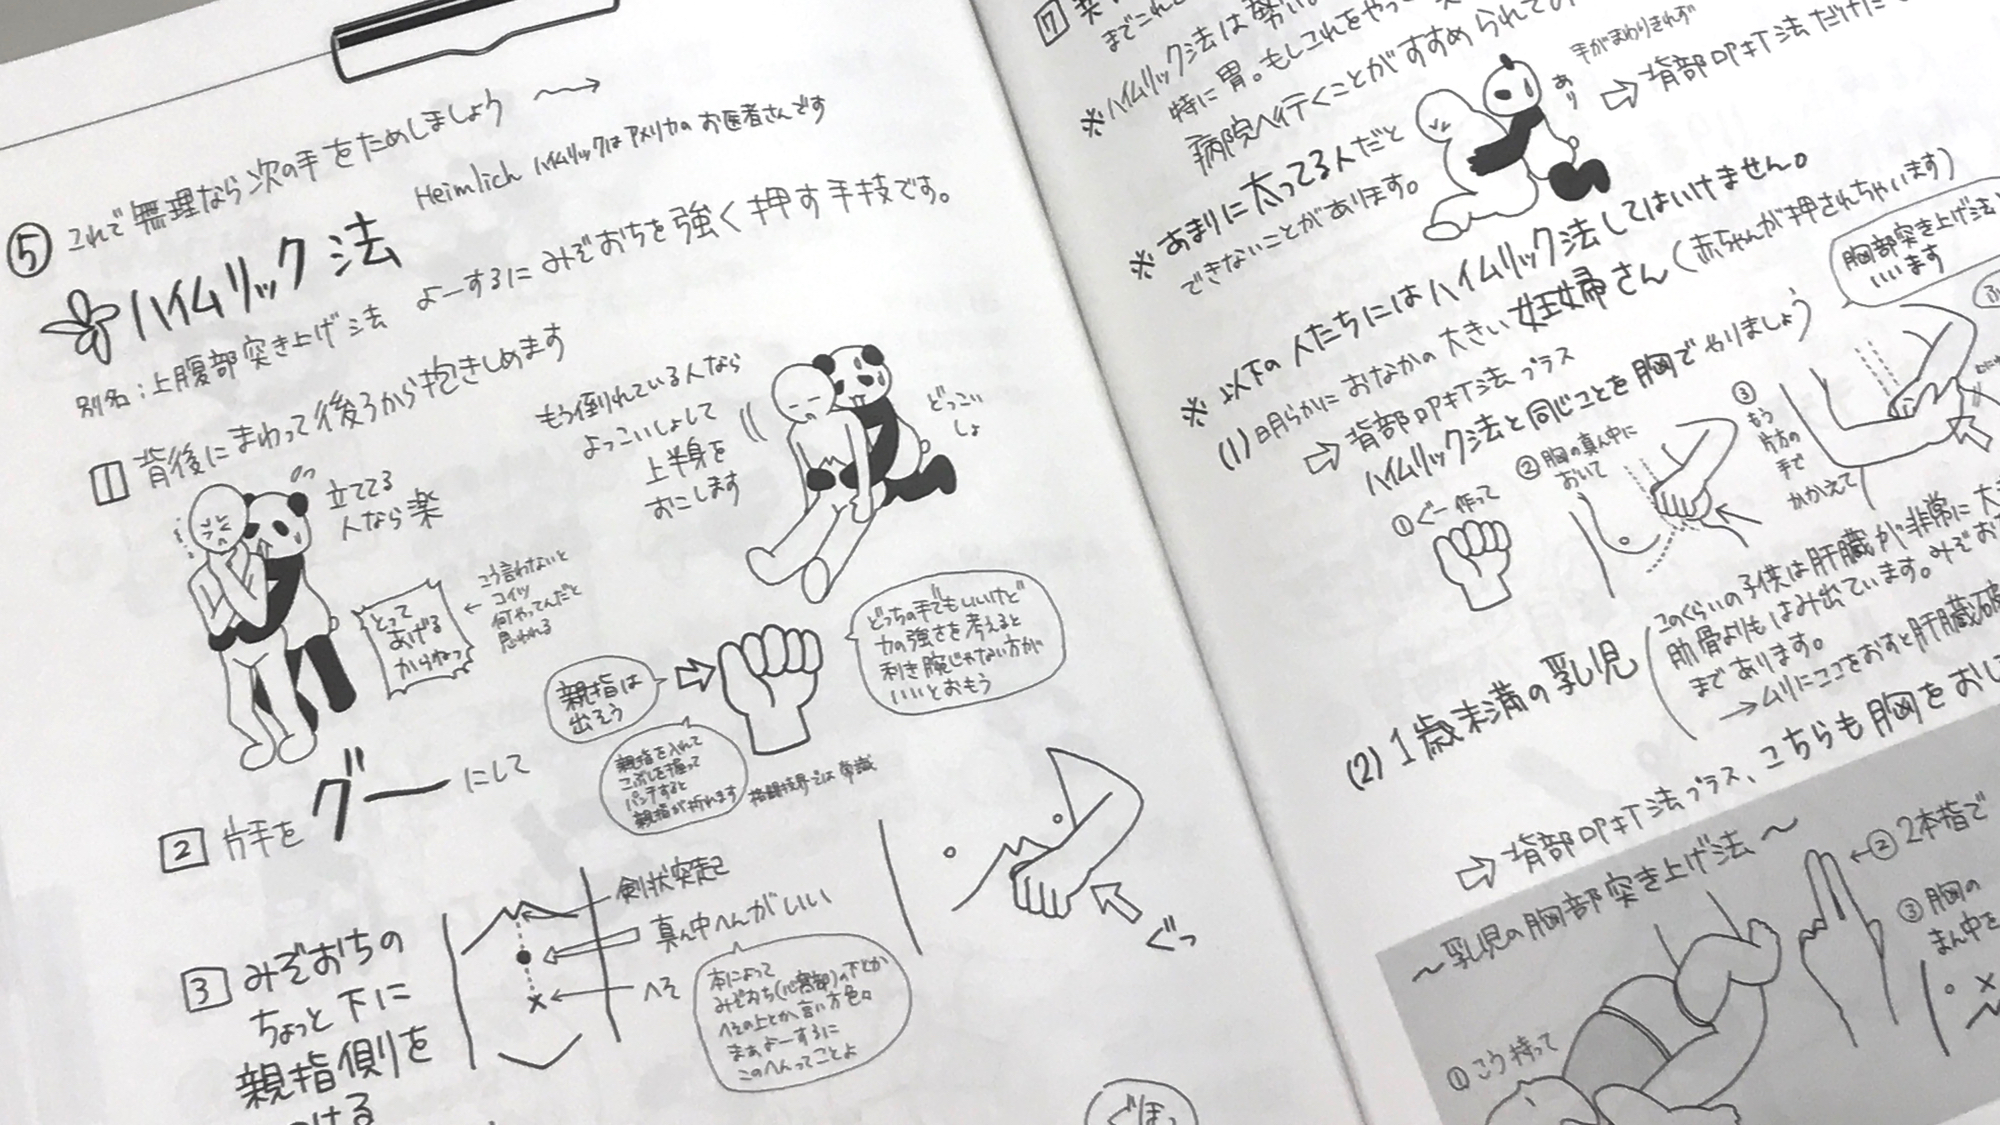 ⑤ これで無理なら次の手をためしましょう
ハイムリック法
Heimlich ハイムリックはアメリカのお医者さんです
別名：上腹部突き上げ法 よーするにみぞおちを強く押す手技です。
1 背後にまわって後ろから抱きしめます
立ててる
人なら楽
とって
あげる
からねっ
こう言わないと
コイツ
何やってんだと
思われる
もう倒れている人なら
よっこいしょして
上半身を
おこします
どっこい
しょ
2 片手を グー にして
親指は
出そう
親指を入れて
こぶしを握って
パンチすると
親指が折れます
格闘技界では常識
どっちの手でもいいけど
力の強さを考えると
利き腕じゃない方が
いいとおもう
3 みぞおちの
ちょっと下に
親指側を
つける
剣状突起
真ん中へんがいい
へそ
本によって
みぞおち(心窩部)の下とか
へその上とか言い方色々
まぁよーするに
このへんってことよ
ぐっ
ぐほっ
7
までこれ
※ハイムリック法は勢い
特に胃。もしこれをやっ
病院へ行くことがすすめられて
※あまりに太ってる人だと
できないことがあります。
手がまわりきれず
あり
⇨背部叩打法だけ
※以下の人たちにはハイムリック法してはいけません。
(1)明らかにおなかの大きい妊婦さん(赤ちゃんが押されちゃいます)
⇨背部叩打法プラス
ハイムリック法と同じことを胸でやりましょう
胸部突き上げ法
いいます
①ぐー作って
②胸の真ん中に
おいて
③もう
片方の
手で
かかえて
(2)1歳未満の乳児
このくらいの子供は肝臓が非常に大
肋骨よりもはみ出ています。みぞお
まであります。
→ムリにココをおすと肝臓破
⇨背部叩打法プラス、こちらも胸をおし
～乳児の胸部突き上げ法～
①こう持って
←②2本指で
③胸の
まん中を